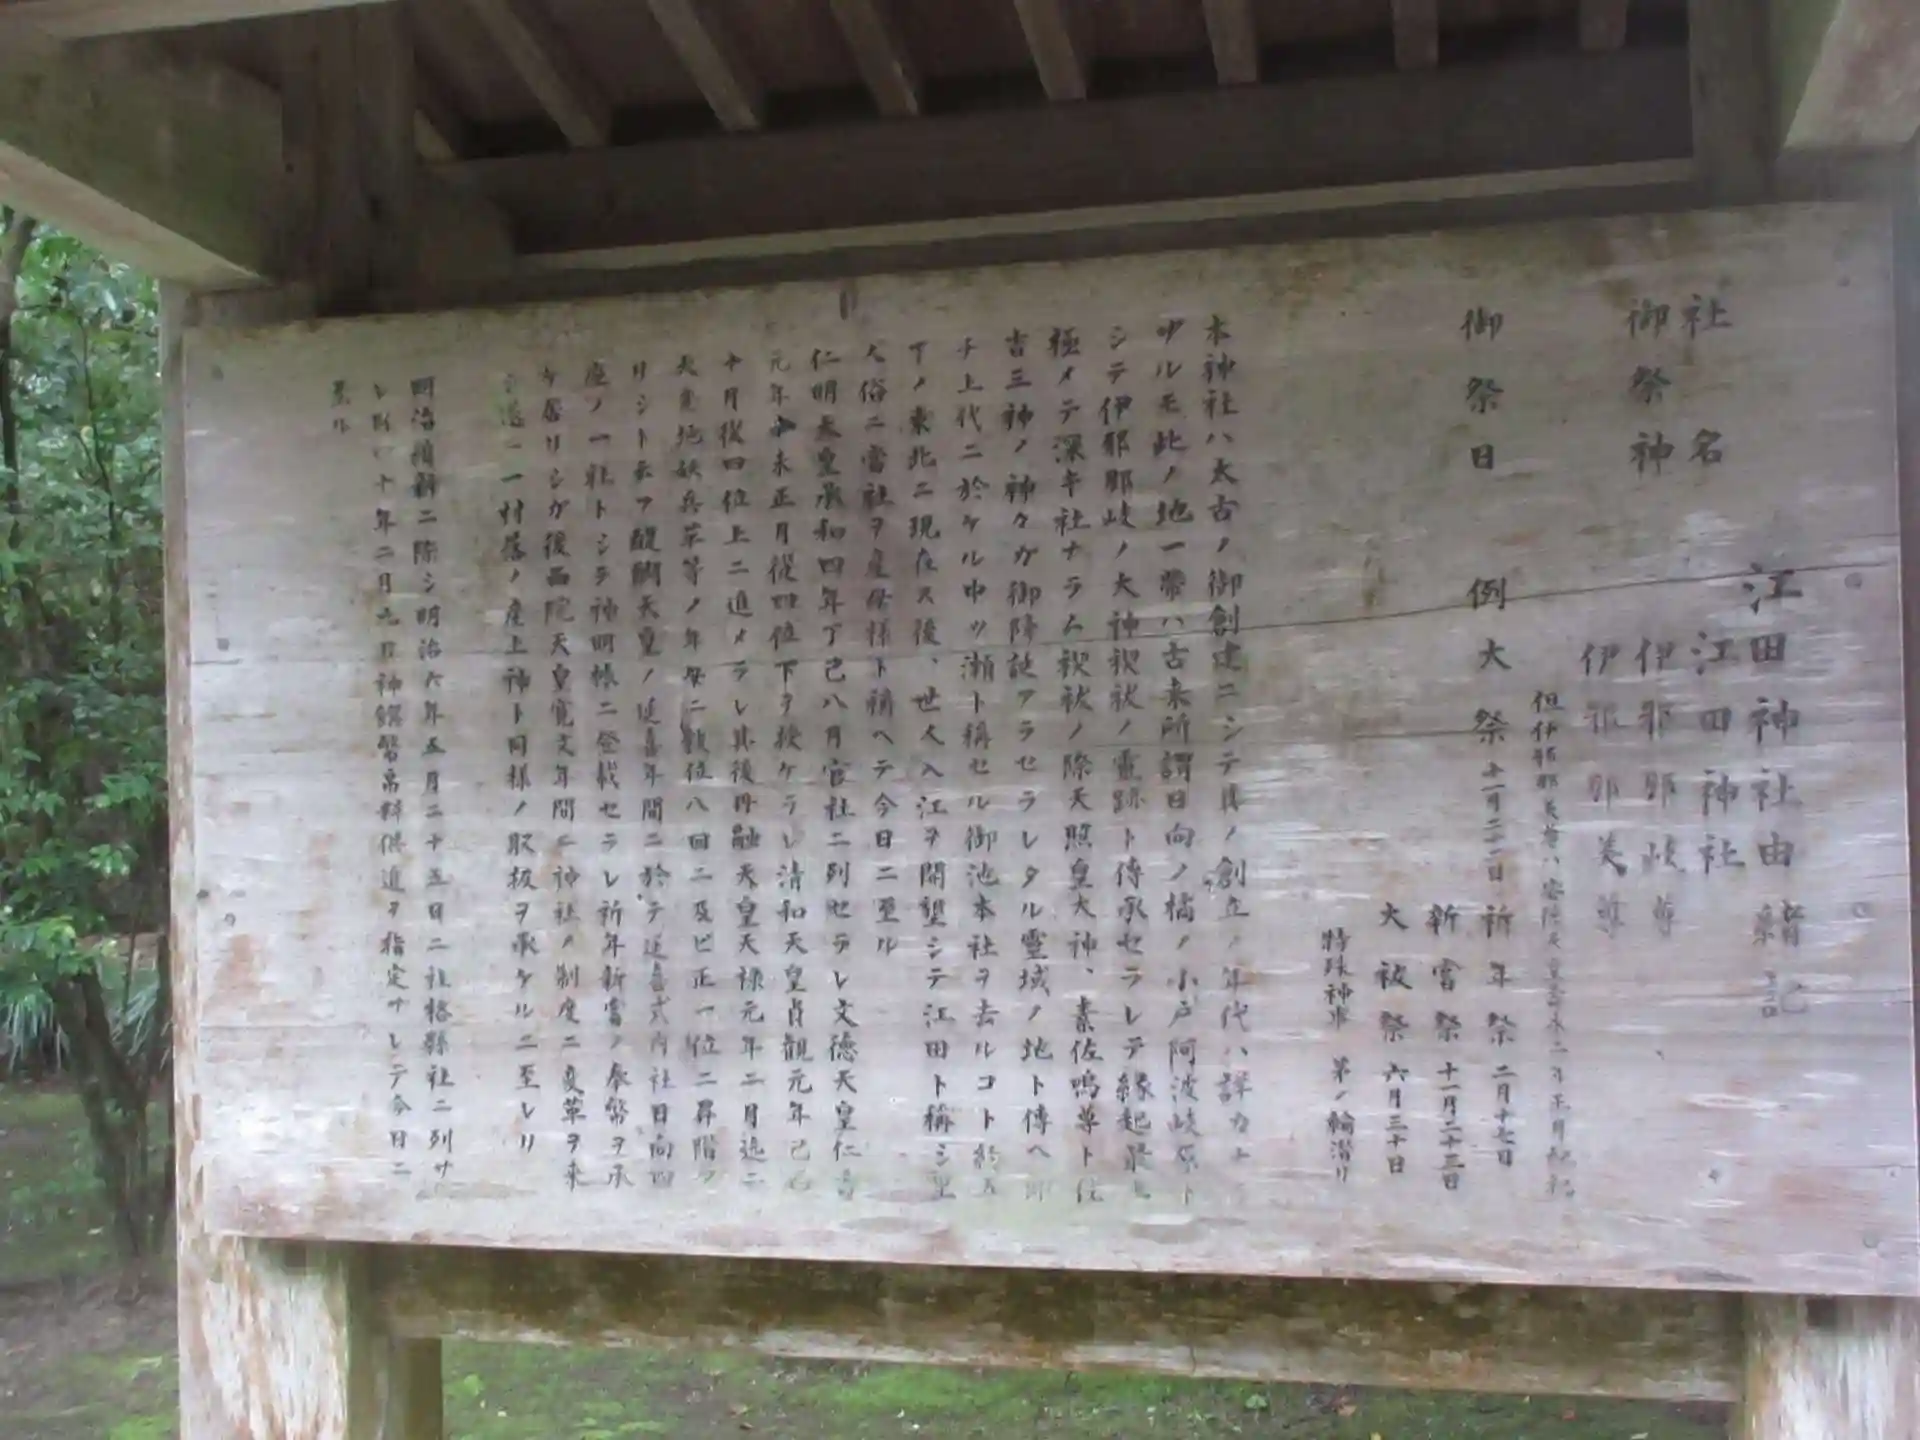 江田神社由緒記
社名 江田神社
御祭神 伊邪那岐尊
伊邪那美尊
但伊邪那美尊ハ
御祭日 例大祭 十一月二十二日 祈年祭 二月十七日
新嘗祭 十一月二十三日
大祓祭 六月三十日
特殊神事 茅ノ輪潜リ
本神社ハ太古ノ御創建ニシテ其ノ創立ノ年代ハ詳カ
ルモ此ノ地一帯ハ古来所謂日向ノ橘ノ小戸阿波岐原ト
シテ伊邪那岐ノ大神禊祓ノ霊跡ト傳承セラレテ縁起最モ
極メテ深キ社ナラム禊祓ノ際天照皇大神、素佐嗚尊ト住
吉三神ノ神々ガ御降誕アラセラレタル霊域ノ地ト傳ヘ即
チ上代ニ於ケル中ツ瀬ト稱セル御池本社ヲ去ルコト約五
丁ノ東北ニ現在ス後、世人入江ヲ開墾シテ江田ト稱シ里
人俗ニ當社ヲ産母様ト稱ヘテ今日ニ至ル
仁明天皇承和四年丁巳八月官社ニ列セラレ文徳天皇仁壽
元年 未正月従四位下ヲ授ケラレ清和天皇貞観元年己卯
十月従四位上ニ進メラレ其後円融天皇天禄元年二月迄ニ
天変地妖兵革等ノ年毎ニ数位八回ニ及ビ正一位ニ昇階ア
リシト云フ醍醐天皇ノ延喜年間ニ於テ延喜式内社日向四
座ノ一社トシテ神明帳ニ登載セラレ祈年新嘗ノ奉幣ヲ承
ケ居リシガ後西院天皇寛文年間ニ神社ノ制度ニ変革ヲ来
シ 一村落ノ産土神ト同様ノ取扱ヲ承ケルニ至レリ
明治維新ニ際シ明治六年五月二十五日ニ社格縣社ニ列サ
レ 十年二月九日神饌幣帛料供進ヲ指定サレテ今日ニ